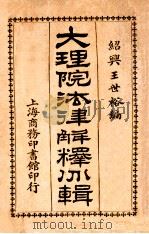 紹興王世裕編
大理院法律解釋分輯
上海商務印書館印行